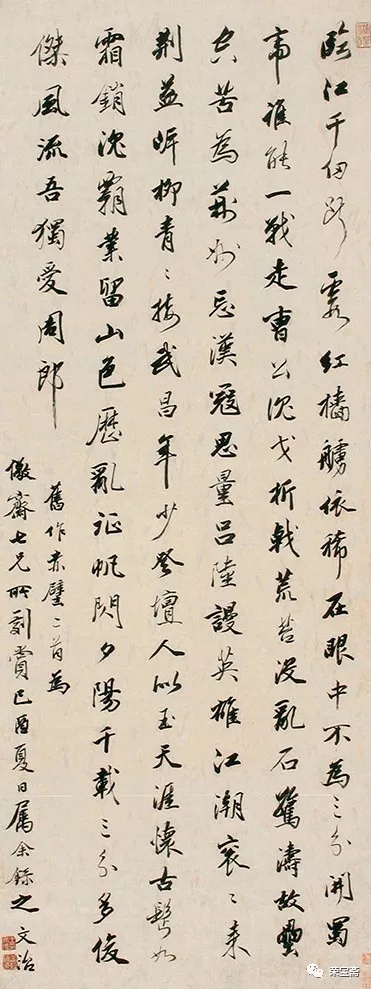 臨江千仞断霞紅檣艣依稀在眼中不為三分開蜀
帝誰能一戰走曹公沈戈折戟荒苔沒亂石驚濤故壘
空苦為荊州忘漢寇思量呂陸謾英雄江潮衮〻來
荊益岸柳青〻接武昌年少登壇人似玉天涯懷古鬢如
霜銷沈霸業留山色歷亂征帆閃夕陽千載三分多俊
傑風流吾獨愛周郎
舊作赤壁二首為
儆齋七兄所劇賞己酉夏日属余錄之 文治
荣宝斋